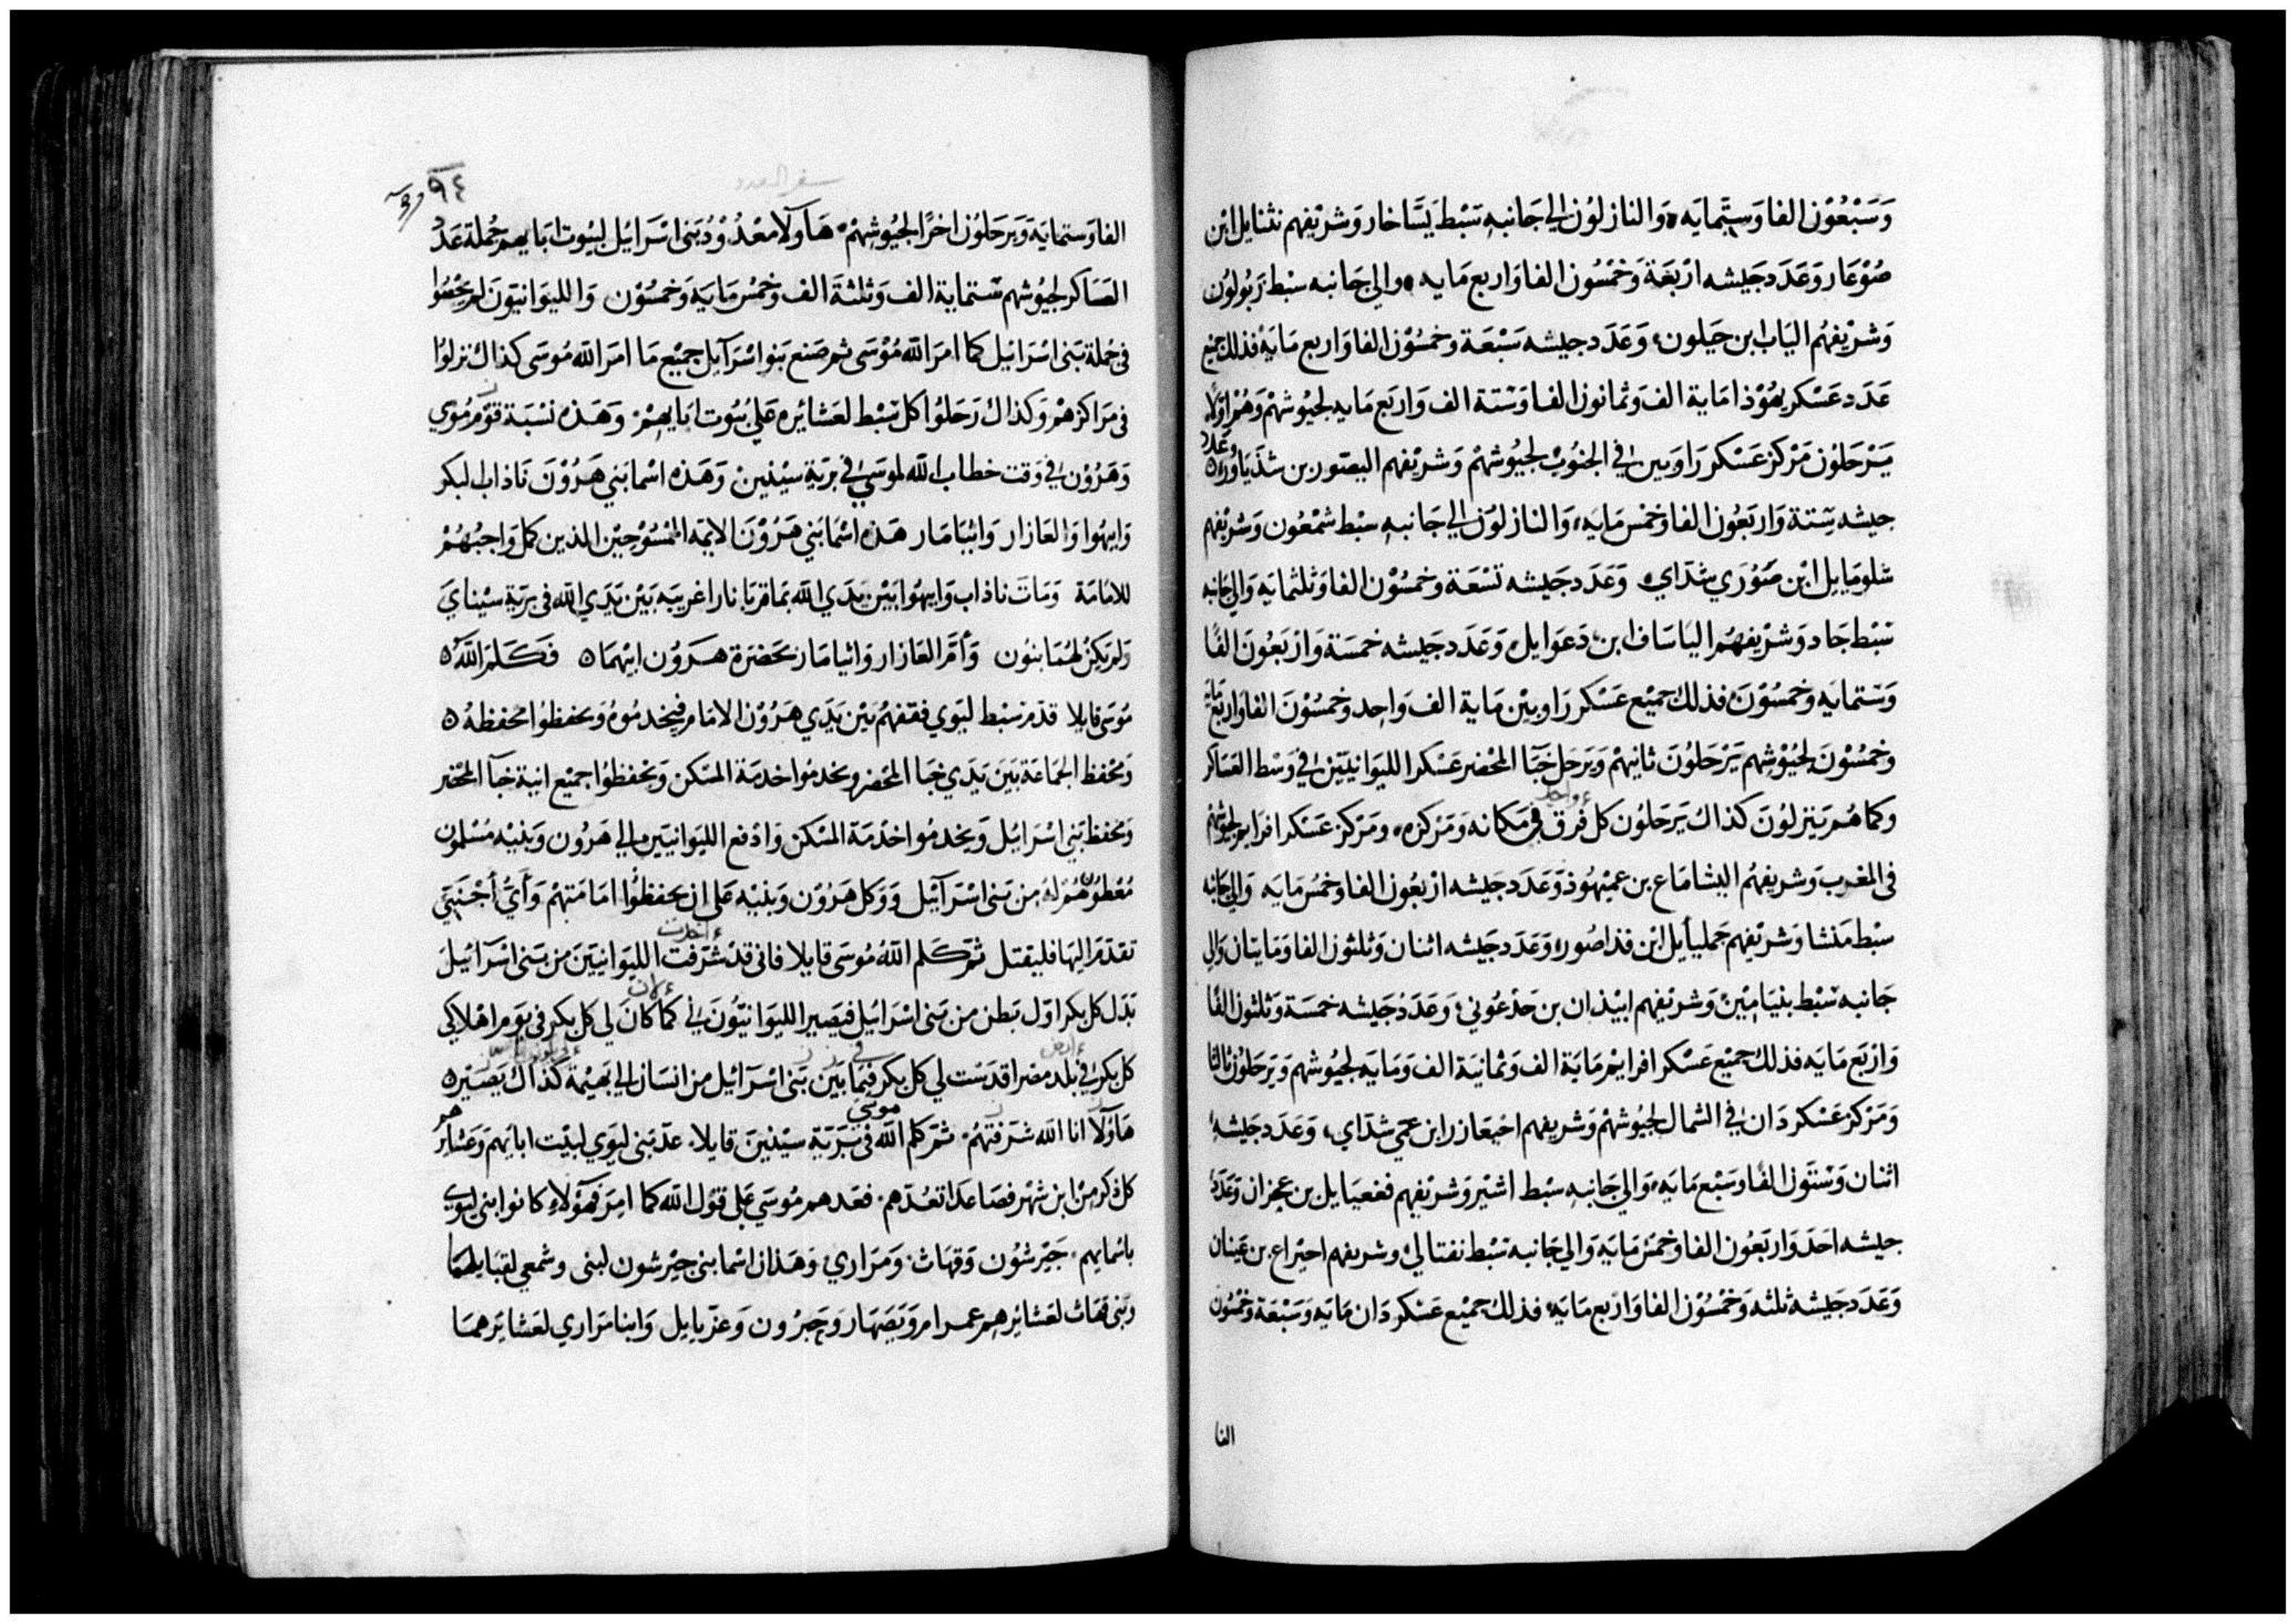 وَسَبْعُوْن الفا وَستّمايَه وَالنازلوُن الي جَانبهِ سَبْط يَسَّاخار وَشريْفهم نثنايل ابن
صُوْعَار وَعَدَد جَيشه ارْبَعَة وَخمْسُون الفا وَاربع مَايه والي جَانبه سبْط زبُولوُن
وَشريْفهُم اليَاب ابن حَيلون وَعَدَد جيشه سَبْعَة وخمسُوْن الفا وَاربع مَايَة فذلك جميْع
عَدَد عَسْكر يهُوْذا مَاية الف وَثمانون الفا وَسْتة الف وَاربَع مَايه لجيُوشهمْ وَهُمْ اوّلا
يَرْحَلوُن مَرْكز عَسْكر رَاوبين في الجنوُبْ لجيُوشهمْ وَشريْفهم اليصُور بن شدَياوُر وعَدد
جيشه ستة وَاربَعُون الفا وخمْس مَايَه وَالنازلوُن الي جَانبهِ سبْط شمْعُون وَشريْفهم
شلوميايل ابْن صُوْري شدَّاي وَعَدَد جَيشه تسْعَة وخمسُوْن الفا وَثلثمايَه وَالي جَانبه
سَبْط جَاد وَشريْفهُم الياسَاف ابن دَعوَايل وَعَدَد جَيشه خمسَة وَارْبَعُونَ الفًا
وَسْتمايَه وخمسُوْنَ فذلك جميْع عَسْكر رَاوبيْن مَاية الف وَاحِد وخمسُوْنَ الفا وَاربع مَايَة
وخمسُوْنَ لجيُوْشهم يَرْحَلوُنَ ثانيهمْ وَيَرحَل خبَآ المحْضر عَسْكر الليوَانيّيْن في وَسْط العَسَاكر
وكما هُم يَنزلوُنَ كذاك يَرحَلوُن كل فرق واحد في مَكانه وَمَرْكزه وَمَرْكز عَسْكر افرايم لجيُوشهم
في المغرب وَشريفهُم اليشامَاع بن عميْهُوذ وَعَدَد جَيشه ارْبعُون الفا وخمْس مَايَه وَالي جَانبه
سبْط مَنشا وَشريْفهم جَمليأيل ابْن فذاصُور وَعَدَد جَيشه اثنان وَثلثون الفا وَمَايتان وَالي
جَانبه سَبْط بنيَاميْن وَشريْفهم ابيْذان بن جَدْعُوني وَعَدَدُ جَيشه خمسَة وَثلثون الفًا
وَارْبَع مَايَه فذلك جميْع عَسْكر افرايم مَايَة الف وَثمانيَة الف وَمَايَه لجيُوشهم وَيَرحَلوُن ثالثا
وَمَرْكز عَسْكر دَان في الشمال لجيُوشهمْ وَشريفهم اخيعَازر ابن عمي شدَّاي وَعَدَد جَيشه
اثنان وَسْتوُن الفا وَسبْع مَايَه وَالي جَانبهِ سبْط اشيْر وَشريْفهم فغعيَايل بن عجران وَعَدَد
جيشه احَد وَاربَعُون الفا وخمْس مَايَه وَالي جَانبه سَبْط نفتالي وشريفهم اخيْراع بن عَينان
وَعَدَد جَيشه ثلثه وَخمْسُوْن الفا وَاربع مَايَه فذلك جميْع عَسْكر دَان مَايَه وَسَبْعَة وخمْسُون
الفا
سفر العدد
٩٤
الفا وَستمايَة وَيَرحَلوُن اخرًا لجيُوشهمْ هَآولا مَعْدُوْدُ بَنى اسْرَايْل لبيُوت ابَايهم جُملة عَدَد
العَسَاكر لجيُوشهم ستماية الف وَثلثَة الف وَخمْس مَايَه وَخمسُوْن وَالليوَانيّونَ لم يحْصُوا
في جُملة بَنى اسْرَايْل كما امَر الله مُوْسَى ثم صَنع بَنو اسْرَآيل جميْع مَا امَر الله مُوسَى كذاك نزلوُا
فى مَراكزهمْ وَكذاك رَحَلوُا كل سَبْط لعَشائره عَلي بيُوت ابَايهمْ وَهَذه نسْبَة قوْم مُوْسَى
وَهَرُوْن في وَقت خطاب الله لموسَي في بريَة سيْنين وَهَذه اسْما بَني هَرُوْنَ نَاذاب البكر
وَابيهُوا وَالعَازار وَايثامَار هَذه اسْمَا بَني هَرُوْنَ الايمّه المَمْسُوْحيْن الذين كمل وَاجبُهُمْ
للامَامَة وَمَات نَاذاب وَابيهُوا بَيْن يَدَي الله بمَا قربَا نارا غريبَه بَيْن يَدَي الله فى بريَة سيْناي
وَلم يَكنْ لهُمَا بنوُن وَأَمَّ العَازار وَايثامَار بحَضرَة هرَوُن ابيْهمَا فَكَلمَ اللهُ
مُوسَى قايلا قدّم سَبْط ليَوي فقفهُمْ بَيْن يَدَي هَرُوْن الامَام فيَخدمُوهُ وَيحفظوُا محفظهُ
وَمحْفظ الجَمَاعَة بَيْنَ يَدَي خبَا المحْضر وَيخدموُا خدمَة المسْكن وَيحفظوُا جميْع انيَة خبَآ المحْضر
وَمحْفظ بَني اسْرَايْل وَيخدمُوا خدْمَة المسْكن وَادْفع الليوَانيّين الي هَرُون وَبنيْه مُسْلمون
مُعْطوُن هُم لهُ من بَنى اسْرَآيْل وَوكل هَرُوْن وَبنيْه عَلى ان يحفظوُا امَامَتهُمْ وَأَيُّ أَجْنَبيّ
تقدّمَ اليْهَا فليقتل ثمّ كلم اللهُ مُوْسَى قايلا فانى قدْ شرَّفت اخذت الليوَانيّيَنَ من بَنى اسْرَآئيْل
بَدَل كل بكر اوّل بَطن من بَنى اسْرَائيْل فيَصيْر الليوَانيّوُن لي كما لان كانَ لي كل بكر فى يَوم اهْلاكي
كل بكر في بَلد ارض مصْر اقدَسْت لي كل بكر فيْما بَيْن في بَنى اسْرَآئيْل من انسَان الي بَهيْمة كذاك يَصيْر
هَآؤلا انا الله شرَّفتهُمْ ثمّ كلم الله موسى فى بَرّيَة سيْنينَ قايلا عدّ بَنى ليَوي لبيْت ابايهم وَعشايرهم
كل ذكر منْ ابن شهْر فصَاعدَا تعُدّهم فعَدهم مُوسَي عَلى قوْل الله كما امِر فهَوُلاءِ كانوا بَني ليَوي
باسْمايهم جَيْرشوُن وَقهَاث وَمَرَاري وَهَذان اسْما بني جيْرشون لبنى وشمعي لقبَايلهمَا
وَبَنى قهَاث لعَشائرهم عمرام وَيَصَهَار وَحَبْرُون وَعزيايل وَابنا مَرَاري لعَشائرهمَا